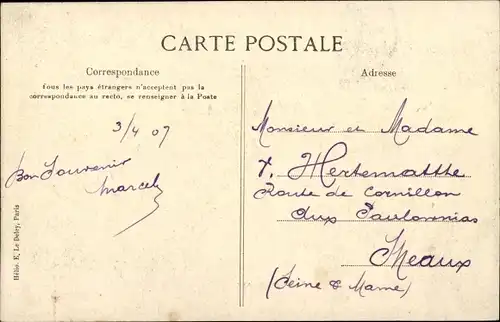 CARTE POSTALE
Correspondance
Tous les pays étrangers n'acceptent pas la
correspondance au recto, se renseigner à la Poste
3/4 07
Bon Souvenir
Marcel
Adresse
Monsieur et Madame
Hertematthe
Route de Cornillon
aux Paulownias
Meaux
(Seine & Marne)
Hélio E. Le Deley, Paris